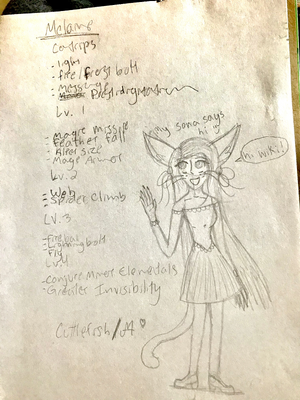 Melame
Cantrips
- light
- fire/frost bolt
- Message
- Prestidigitation
LV. 1
- Magic Missile
- Feather Fall
- Alter size
- Mage Armor
LV. 2
- Web
- Spider Climb
LV. 3
- Fireball
- Lightning bolt
- Fly
LV. 4
- Conjure Minor Elementals
- Greater Invisibility
my sona says
hi
hi wiki!
Cuttlefish/